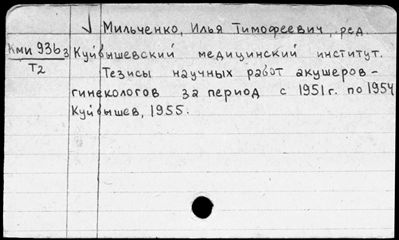 √ Мильченко, Илья Тимофеевич, ред.
Кми 936з
Т2
Куйбышевский медицинский институт.
Тезисы научных работ акушеров-
гинекологов за период с 1951г. по 1954
Куйбышев, 1955.